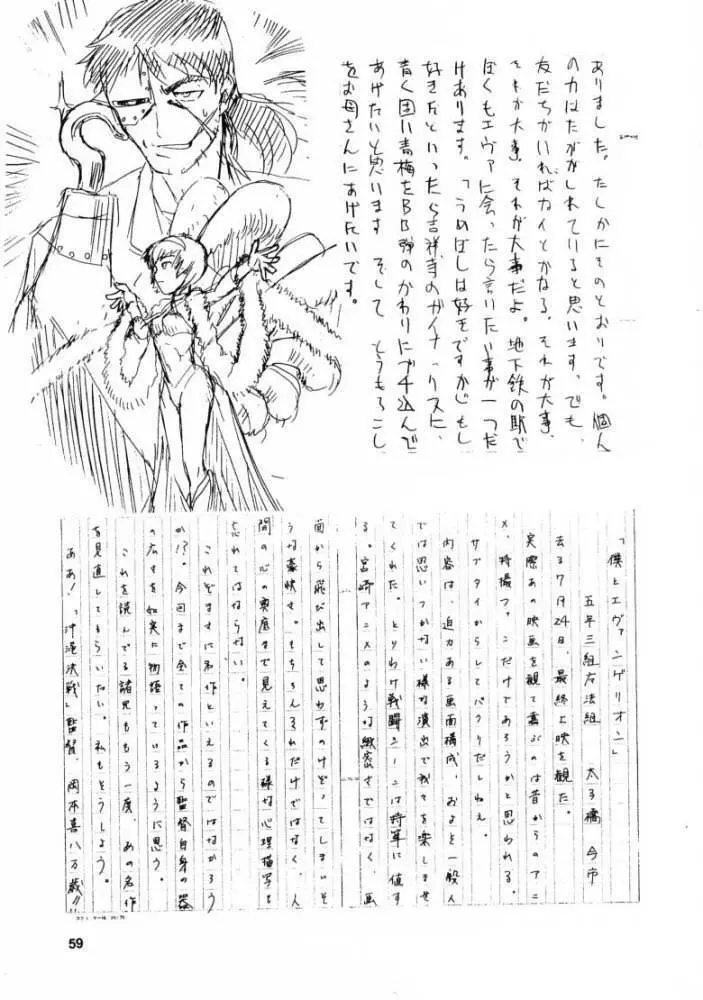 ありました。たしかにそのとおりです。個人
の力はたかがしれていると思います。でも、
友だちがいればナントカなる。それが大事、
それが大事、それが大事だよ。地下鉄の駅で
ぼくもエヴァに会ったら言いたい事が一つだ
けあります。「うめぼしは好きですか」もし
好きだといったら吉祥寺のガイナックスに、
青く固い青梅をBB弾のかわりにブチ込んで
あげたいと思います。そして とうもろこし
をお母さんにあげたいです。
「僕とエヴァンゲリオン」
五年三組 太子橋 今市
去る7月24日、最終上映を観た。
実際あの映画を観て喜ぶのは昔からのアニ
メ、特撮ファンだけであろうかと思われる。
サブタイからしてパクリだしねぇ。
内容は、迫力ある画面構成、およそ一般人
では思いつかない様な演出で我々を楽しませ
てくれた。とりわけ戦闘シーンは特筆に値す
る。宮崎アニメのような緻密さではなく、画
面から飛び出して思わずのけぞってしまいそ
うな豪快さ。もちろんそれだけではなく、人
間の心の奥底まで見えてくる様な心理描写も
忘れてはならない。
これぞまさに名作といえるのではなかろう
か!?。今回まで全ての作品から監督自身の器
の広さを如実に物語っているように思う。
これを読んでる諸兄ももう一度、あの名作
を見直してもらいたい。私もそうしよう。
ああ!「沖縄決戦」監督、岡本喜八万歳!!
59